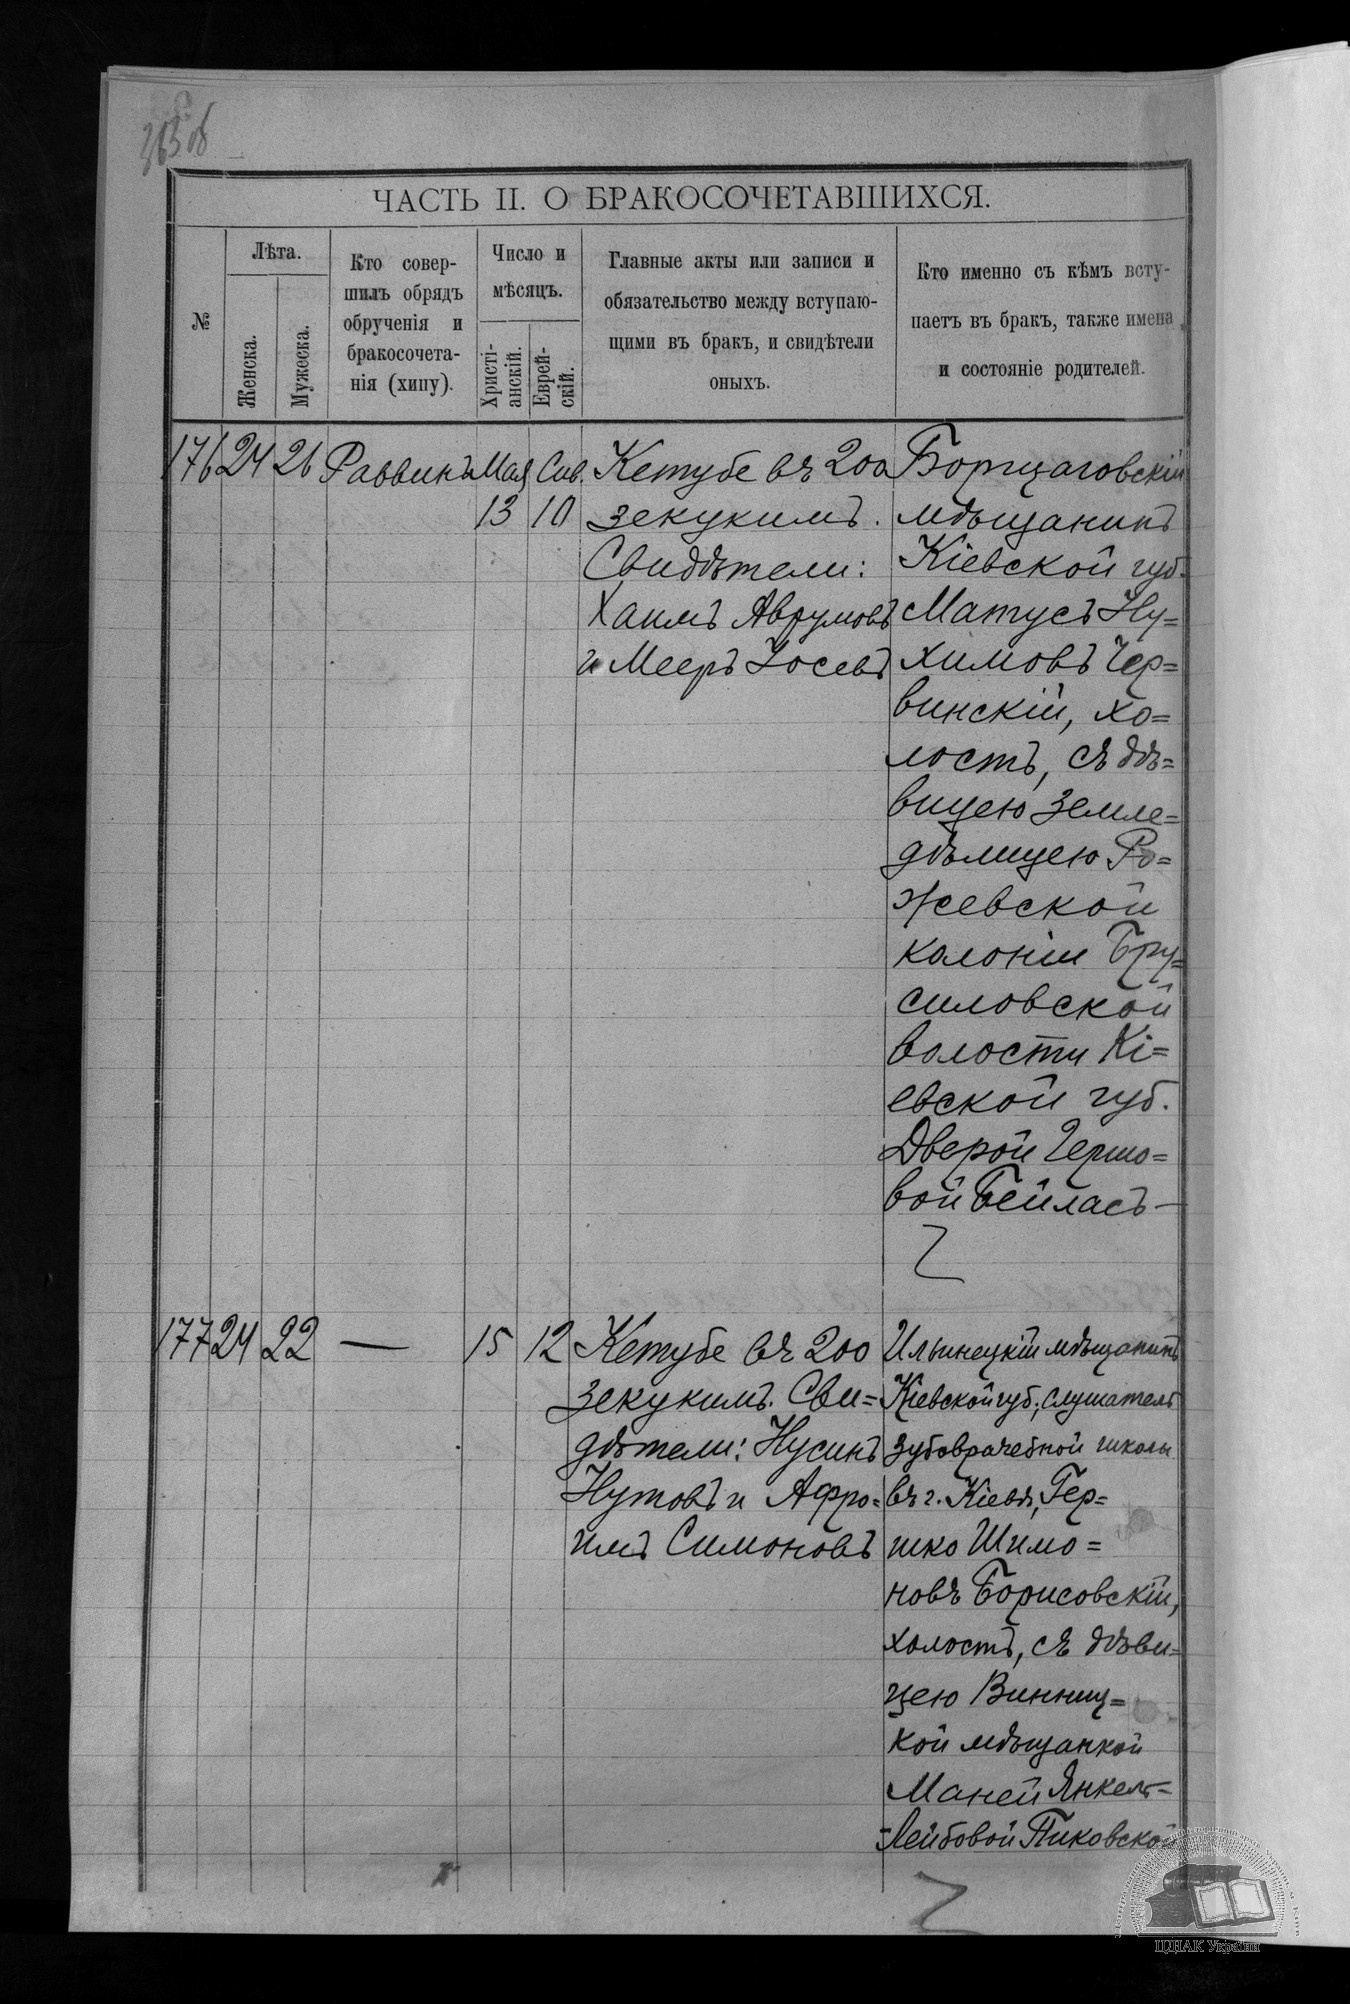 363 об
ЧАСТЬ II. О БРАКОСОЧЕТАВШИХСЯ.
№
Лѣта.
Женска.
Мужеска.
Кто совер-
шилъ обрядъ
обрученія и
бракосочета-
нія (хипу).
Число и
мѣсяцъ.
Христі-
анскій.
Еврей-
скій.
Главные акты или записи и
обязательство между вступаю-
щими въ бракъ, и свидѣтели
оныхъ.
Кто именно съ кѣмъ всту-
паетъ въ бракъ, также имена
и состояніе родителей.
176 24 26 Раввинъ Мая 13 Сив. 10
Кетубе въ 200
зекукимъ.
Свидѣтели:
Хаимъ Аврумовъ
и Мееръ Іосевъ
Борщаговскій
мѣщанинъ
Кіевской губ.
Матусъ Ну=
химовъ Чер=
винскій, хо=
лостъ, съ дѣ=
вицею земле=
дѣлицею Ро=
жевской
колоніи Бру=
силовской
волости Кі=
евской губ.
Дверой Гершо=
вой Бейласъ—
177 24 22 — 15 12
Кетубе въ 200
зекукимъ. Сви=
дѣтели: Нусинъ
Нутовъ и Афро=
имъ Симоновъ
Ильинецкій мѣщанинъ
Кіевской губ., слушатель
зубоврачебной школы
въ г. Кіевѣ, Гер=
шко Шимо=
новъ Борисовскій,
холостъ, съ дѣви=
цею Винниц=
кой мѣщанкой
Маней Янкель=
-Лейбовой Пиковской
ЦДІАК України